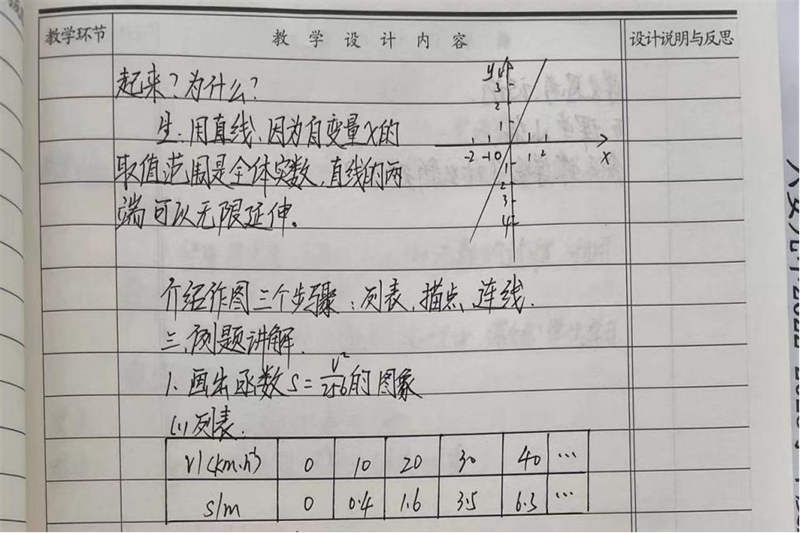 教学环节
教学设计内容
设计说明与反思
起来?为什么?
生:用直线,因为自变量x的
取值范围是全体实数,直线的两
端可以无限延伸。
y
3
2
1
-2 -1 0 1 2 x
1
2
3
4
介绍作图三个步骤:列表,描点,连线.
三、例题讲解.
1. 画出函数S=v²/256的图象
(1)列表.
v/(km·h⁻¹) 0 10 20 30 40 …
s/m 0 0.4 1.6 3.5 6.3 …